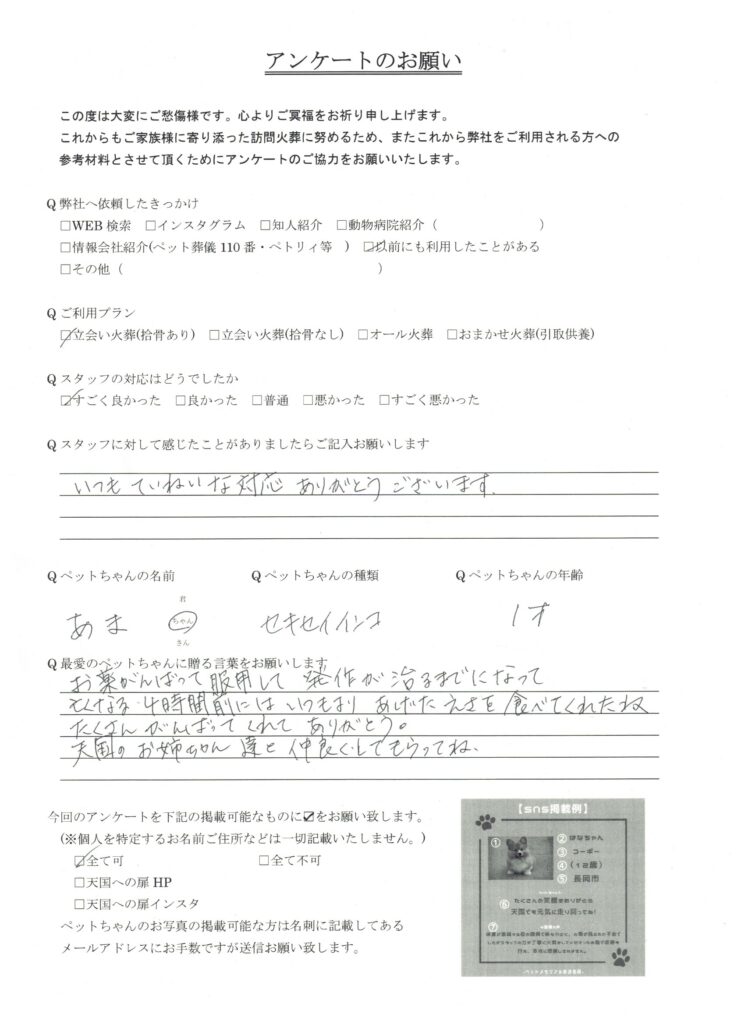 アンケートのお願い
この度は大変にご愁傷様です。心よりご冥福をお祈り申し上げます。
これからもご家族様に寄り添った訪問火葬に努めるため、またこれから弊社をご利用される方への
参考材料とさせて頂くためにアンケートのご協力をお願いいたします。
Q 弊社へ依頼したきっかけ
□WEB 検索 □インスタグラム □知人紹介 □動物病院紹介（ ）
□情報会社紹介(ペット葬儀 110 番・ペトリィ等 ) ☑以前にも利用したことがある
□その他（ ）
Q ご利用プラン
☑立会い火葬(拾骨あり) □立会い火葬(拾骨なし) □オール火葬 □おまかせ火葬(引取供養)
Q スタッフの対応はどうでしたか
☑すごく良かった □良かった □普通 □悪かった □すごく悪かった
Q スタッフに対して感じたことがありましたらご記入お願いします
いつもていねいな対応 ありがとうございます。
Q ペットちゃんの名前 Q ペットちゃんの種類 Q ペットちゃんの年齢
君
あま ちゃん セキセイインコ 1才
さん
Q 最愛のペットちゃんに贈る言葉をお願いします
お薬がんばって服用して 発作が治るまでになって
亡くなる 4時間前には いつもより あげたえさを食べてくれたね
たくさんがんばってくれて ありがとう。
天国のお姉ちゃん達と仲良くしてもらってね、
今回のアンケートを下記の掲載可能なものに☑をお願い致します。
(※個人を特定するお名前ご住所などは一切記載いたしません。)
☑全て可 □全て不可
□天国への扉 HP
□天国への扉インスタ
ペットちゃんのお写真の掲載可能な方は名刺に記載してある
メールアドレスにお手数ですが送信お願い致します。
【sns掲載例】
① ② はなちゃん
③ コーギー
④ (12歳)
⑤ 長岡市
⑥ たくさんの笑顔をありがとう
天国でも元気に走り回ってね!
⑦